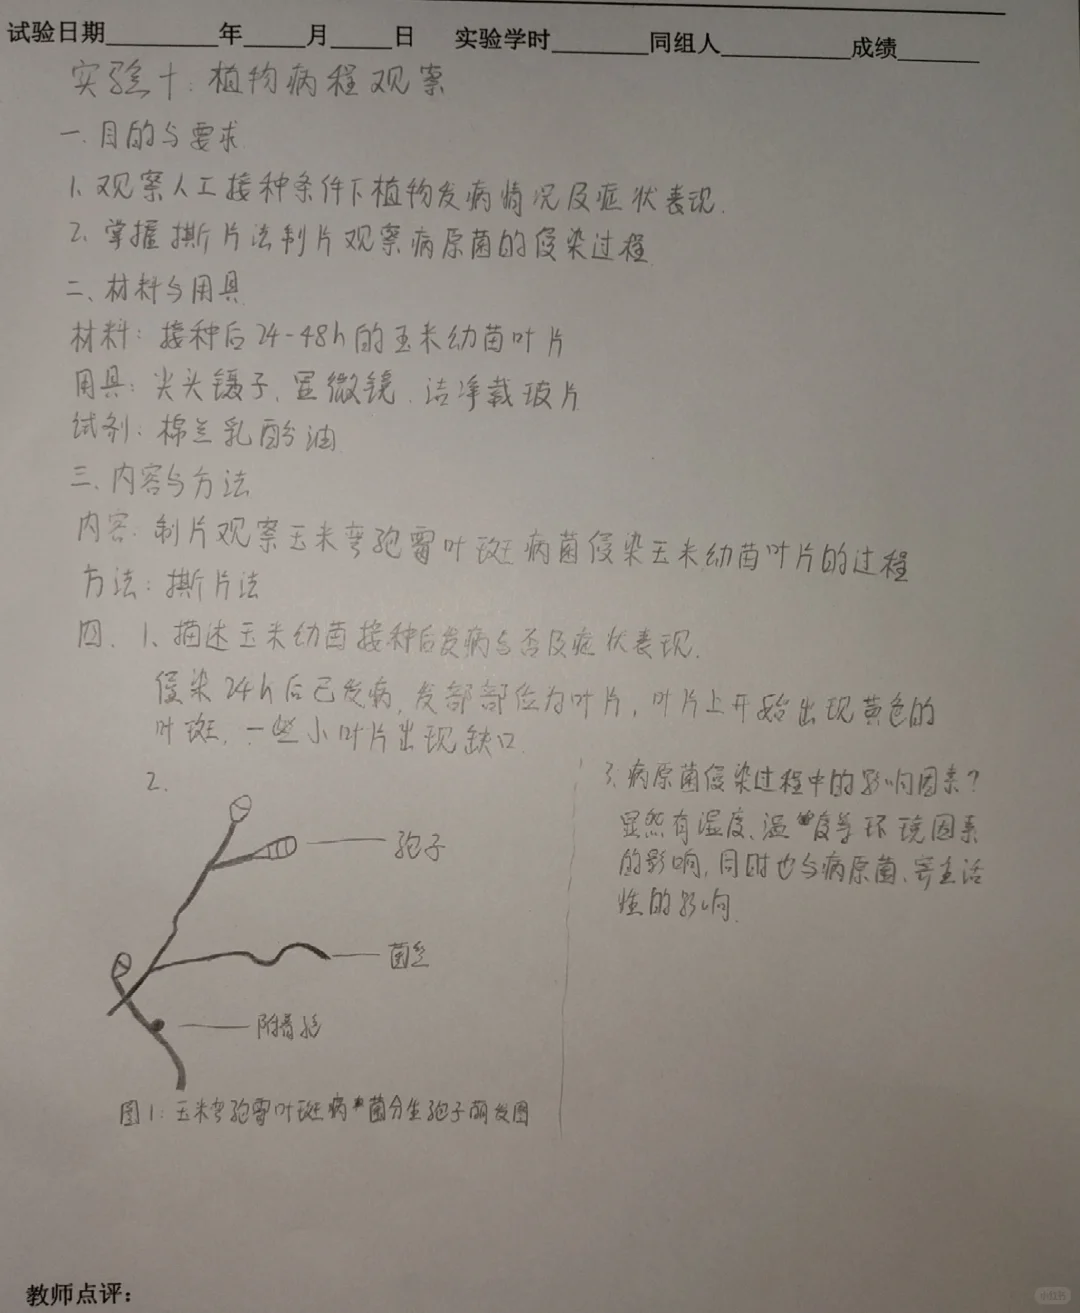 试验日期________年_____月_____日 实验学时________同组人__________成绩_______
实验十:植物病程观察
一.目的与要求
1.观察人工接种条件下植物发病情况及症状表现.
2.掌握撕片法制片观察病原菌的侵染过程
二、材料与用具
材料:接种后24-48h的玉米幼苗叶片
用具:尖头镊子、显微镜.洁净载玻片
试剂:棉兰乳酚油
三、内容与方法
内容:制片观察玉米弯孢霉叶斑病菌侵染玉米幼苗叶片的过程
方法:撕片法
四. 1、描述玉米幼苗接种后发病与否及症状表现.
侵染24h后已发病,发部部位为叶片,叶片上开始出现黄色的
叶斑,一些小叶片出现缺口.
2.
孢子
菌丝
附着孢
图1:玉米弯孢霉叶斑病菌分生孢子萌发图
3.病原菌侵染过程中的影响因素?
显然有湿度、温度等环境因素
的影响,同时也与病原菌、寄主活
性的影响.
教师点评:
小红书